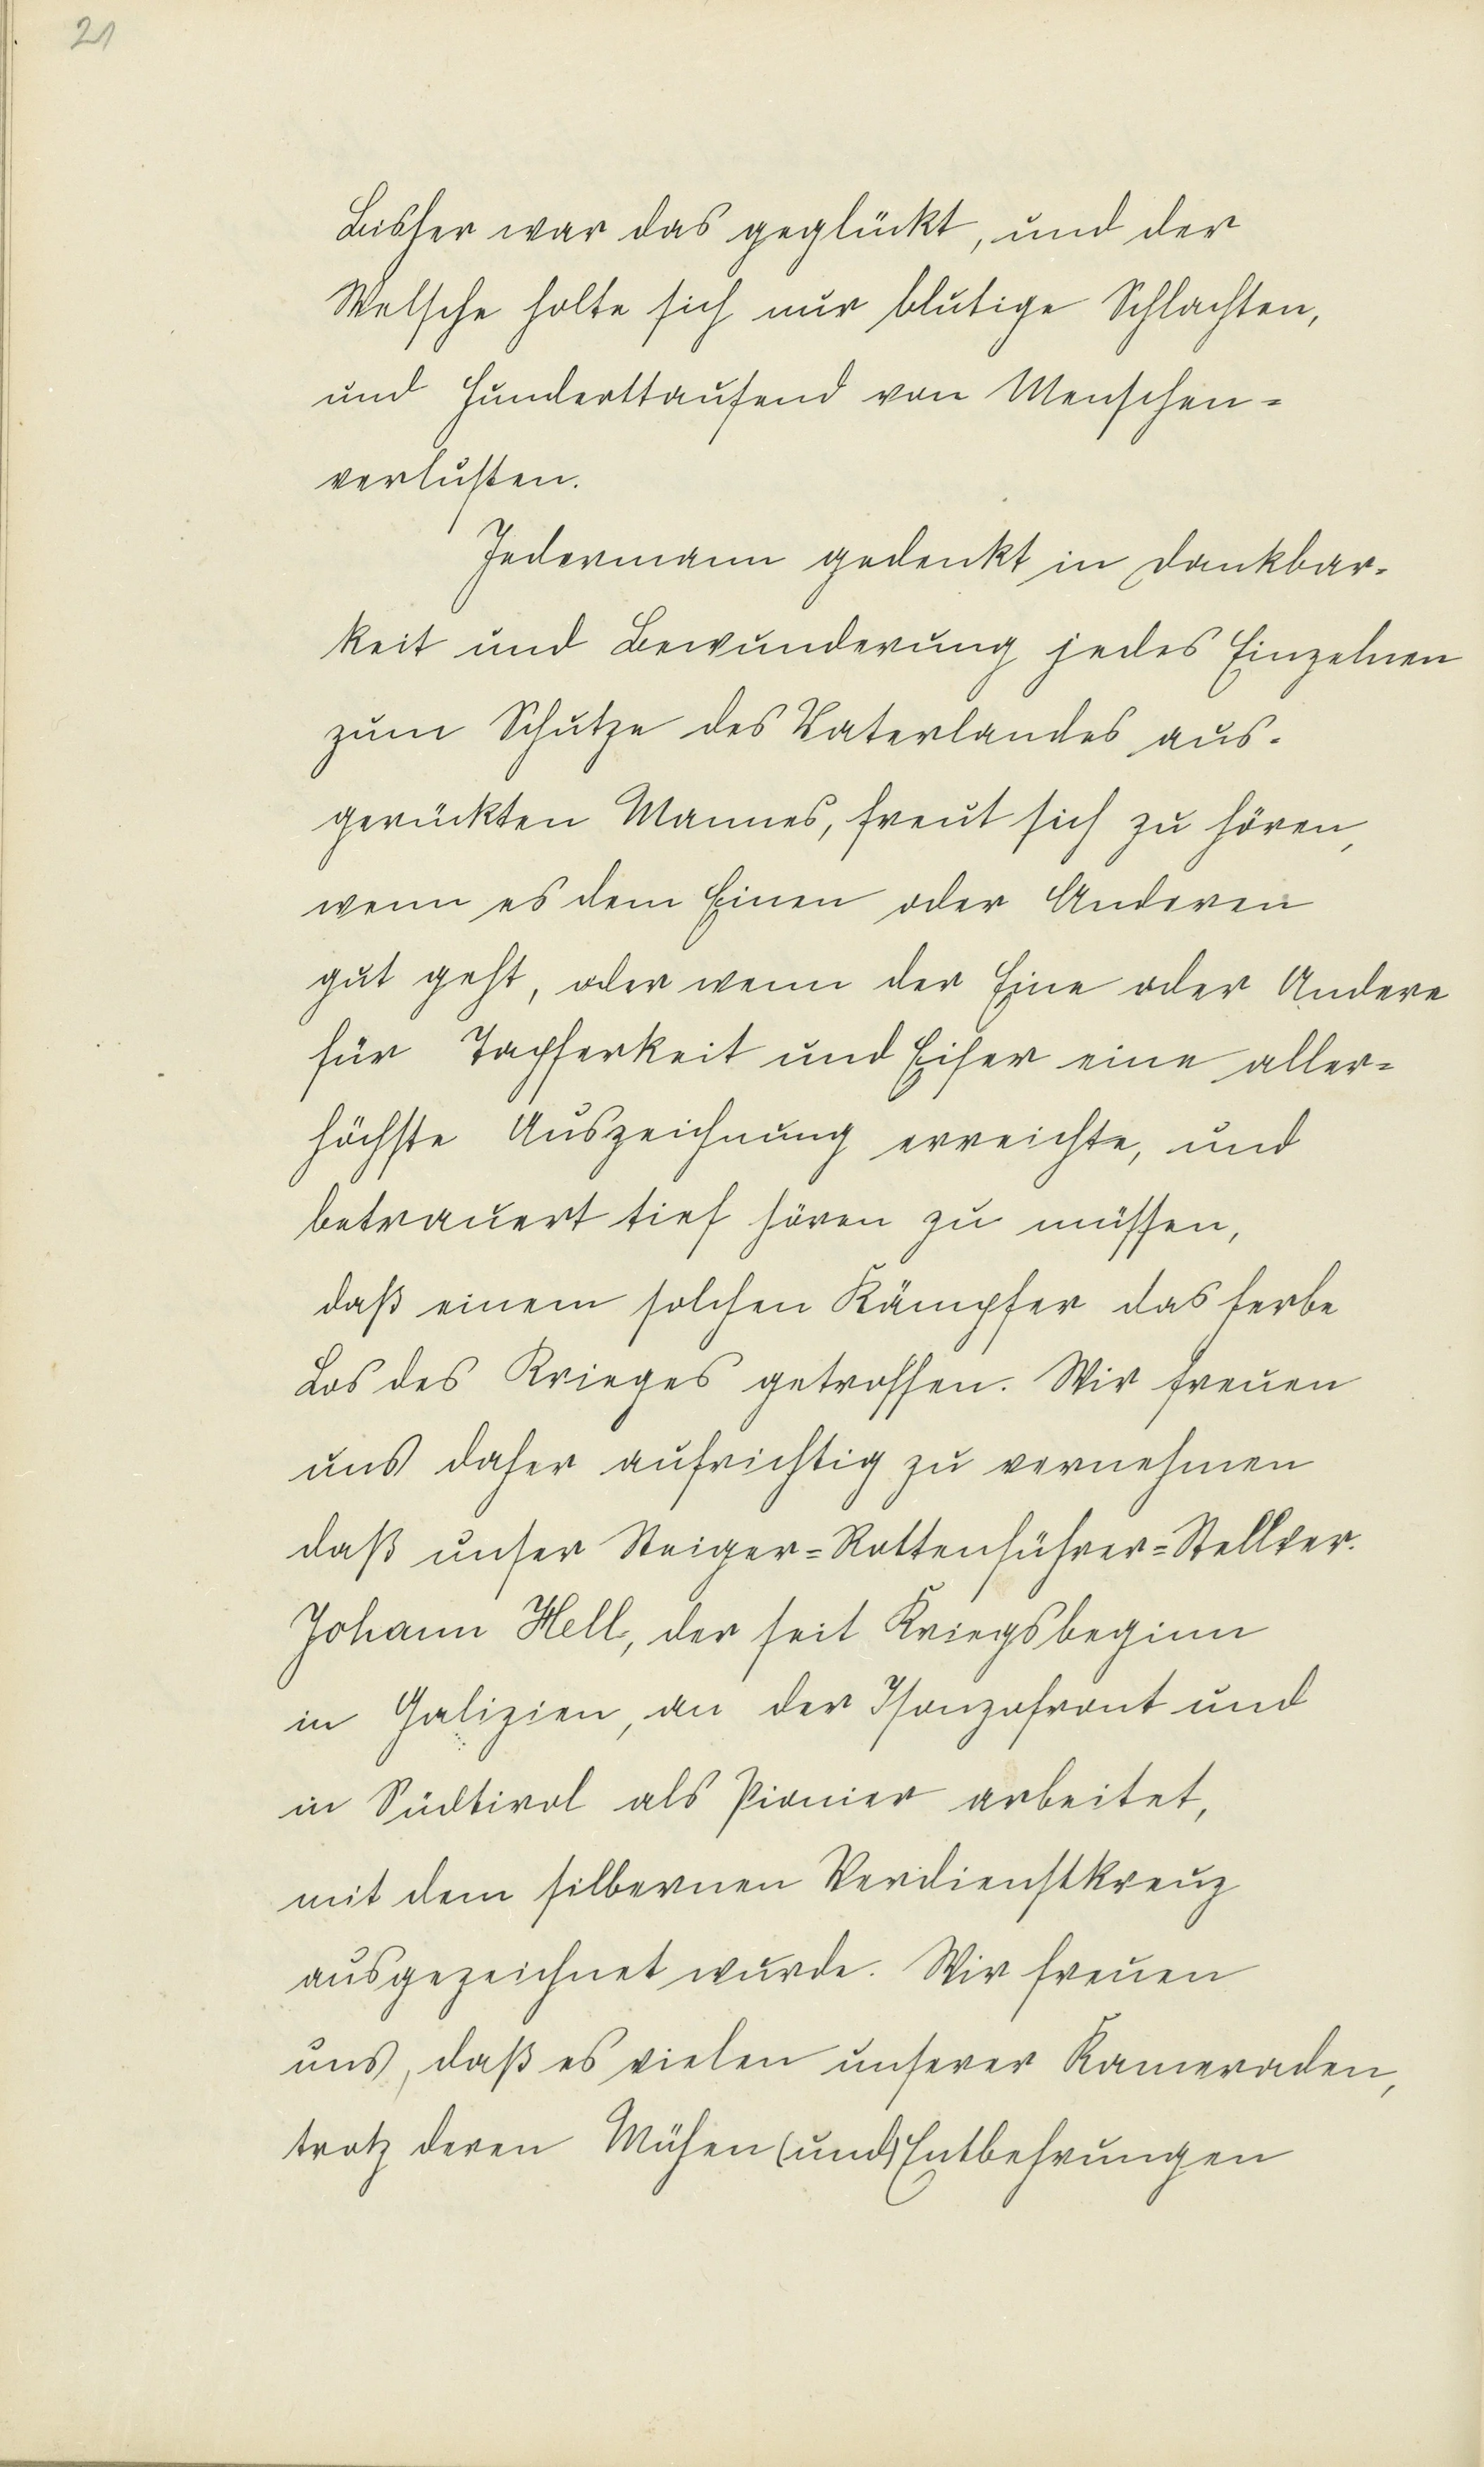 21
Bisher war das geglückt, und der
Welsche holte sich nur blutige Schlachten,
und Hunderttausend von Menschen=
verlusten.
Jedermann gedenkt in Dankbar-
keit und Bewunderung jedes Einzelnen
zum Schutze des Vaterlandes aus-
gerückten Mannes, freut sich zu hören,
wenn es dem Einen oder Anderen
gut geht, oder wenn der Eine oder Andere
für Tapferkeit und Eifer eine aller=
höchste Auszeichnung erreichte, und
betrauert tief hören zu müssen,
daß einem solchen Kämpfer das herbe
Los des Krieges getroffen. Wir freuen
uns daher aufrichtig zu vernehmen
daß unser Steiger=Rottenführer=Stellver.
Johann Hell, der seit Kriegsbeginn
in Galizien, an der Isonzofront und
in Südtirol als Pionier arbeitet,
mit dem silbernen Verdienstkreuz
ausgezeichnet wurde. Wir freuen
uns, daß es vielen unserer Kameraden,
trotz deren Mühen (und) Entbehrungen